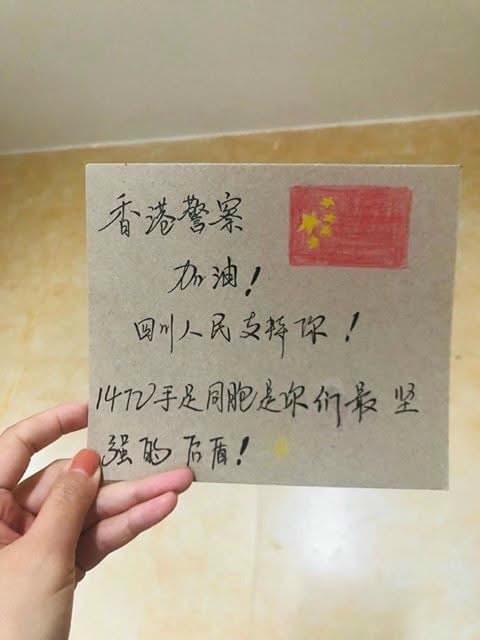 香港警察
加油！
四川人民支持你！
14亿手足同胞是你们最坚
强的后盾！